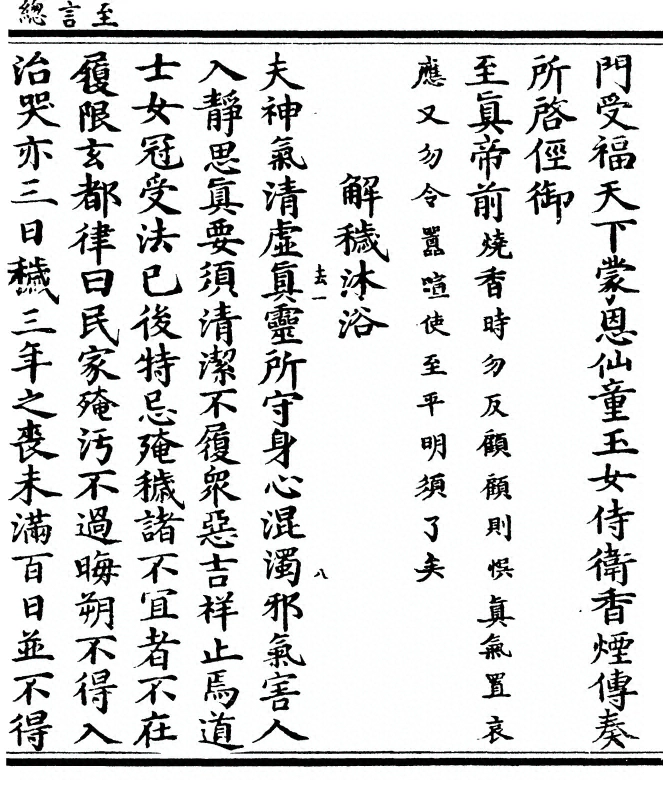 至言總
門受福天下蒙恩仙童玉女侍衛香煙傳奏
所啓徑御
至眞帝前燒香時勿反顧顧則悮眞氣置哀
應又勿令囂喧使至平明須了矣
解穢沐浴
去一
八
夫神氣清虛眞靈所守身心混濁邪氣害人
入靜思眞要須清潔不履衆惡吉祥止焉道
士女冠受法已後特忌殗穢諸不宜者不在
履限玄都律曰民家殗污不過晦朔不得入
治哭亦三日穢三年之喪未滿百日並不得